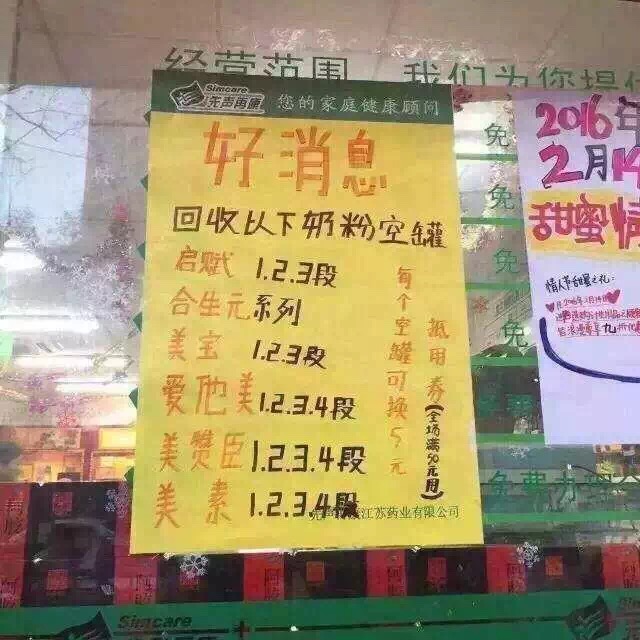 经营范围
我们为你提供
Simcare
先声再康
您的家庭健康顾问
好消息
回收以下奶粉空罐
启赋 1.2.3段
合生元系列
美宝 1.2.3段
爱他美 1.2.3.4段
美赞臣 1.2.3.4段
美素 1.2.3.4段
每个空罐可换5元
抵用券(全场满50元用)
江苏药业有限公司
免
免
免
免
免
免费办理会
2016年
2月14
甜蜜情
情人节甜蜜之礼:
Simcare
Simcare